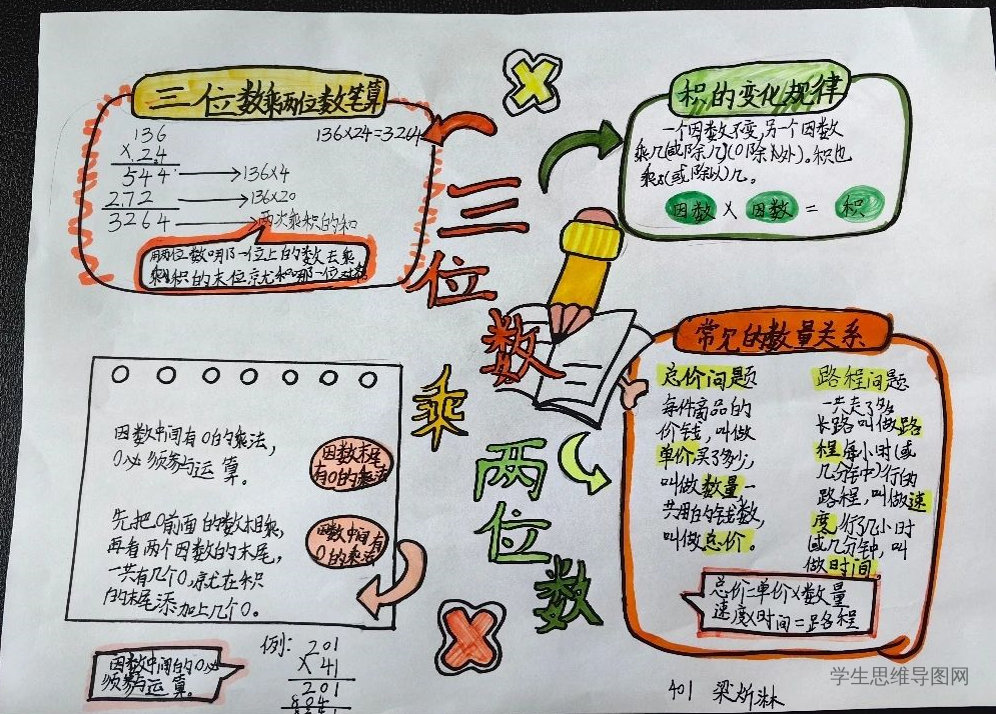 三位数乘两位数笔算
136
×24
544→136×4
272→136×20
3264→两次乘积的和
136×24=3264
用两位数哪一位上的数去乘
乘积的末位就和哪一位对齐
积的变化规律
一个因数不变,另一个因数
乘几(或除几)(0除外)。积也
乘(或除以)几。
因数×因数=积
三位数乘两位数
常见的数量关系
总价问题
每件商品的
价钱,叫做
单价买了多少,
叫做数量,一
共用的钱数,
叫做总价。
路程问题
一共走了多
长路叫做路
程每小时(或
几分钟中)行的
路程,叫做速
度,行了几小时
或几分钟,叫
做时间
总价=单价×数量
速度×时间=路程
因数中间有0的乘法,
0必须参与运算。
因数末尾
有0的乘法
先把0前面的数相乘,
再看两个因数的末尾,
一共有几个0,就在积
的末尾添加上几个0。
因数中间有
0的乘法
因数中间的0必
须参与运算。
例:
201
×41
201
804
401 梁炘淋
学生思维导图网